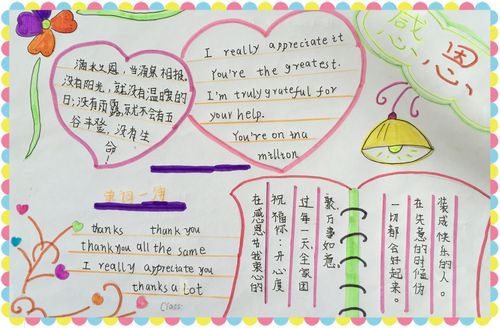 感恩
滴水之恩，当涌泉相报。
没有阳光，就没有温暖的
日；没有雨露，就不会有五
谷丰登，没有生
命！
I really appreciate it
You're the greatest.
I'm truly grateful for
your help.
You're on tna
million
thanks thank you
thank you all the same
I really appreciate you
thanks a lot
Class:
在感恩节我衷心的
祝福你：开心度
过每一天，全家团
聚，万事如意。
一切都会好起来。
在失意的时候伪
装成快乐的人。